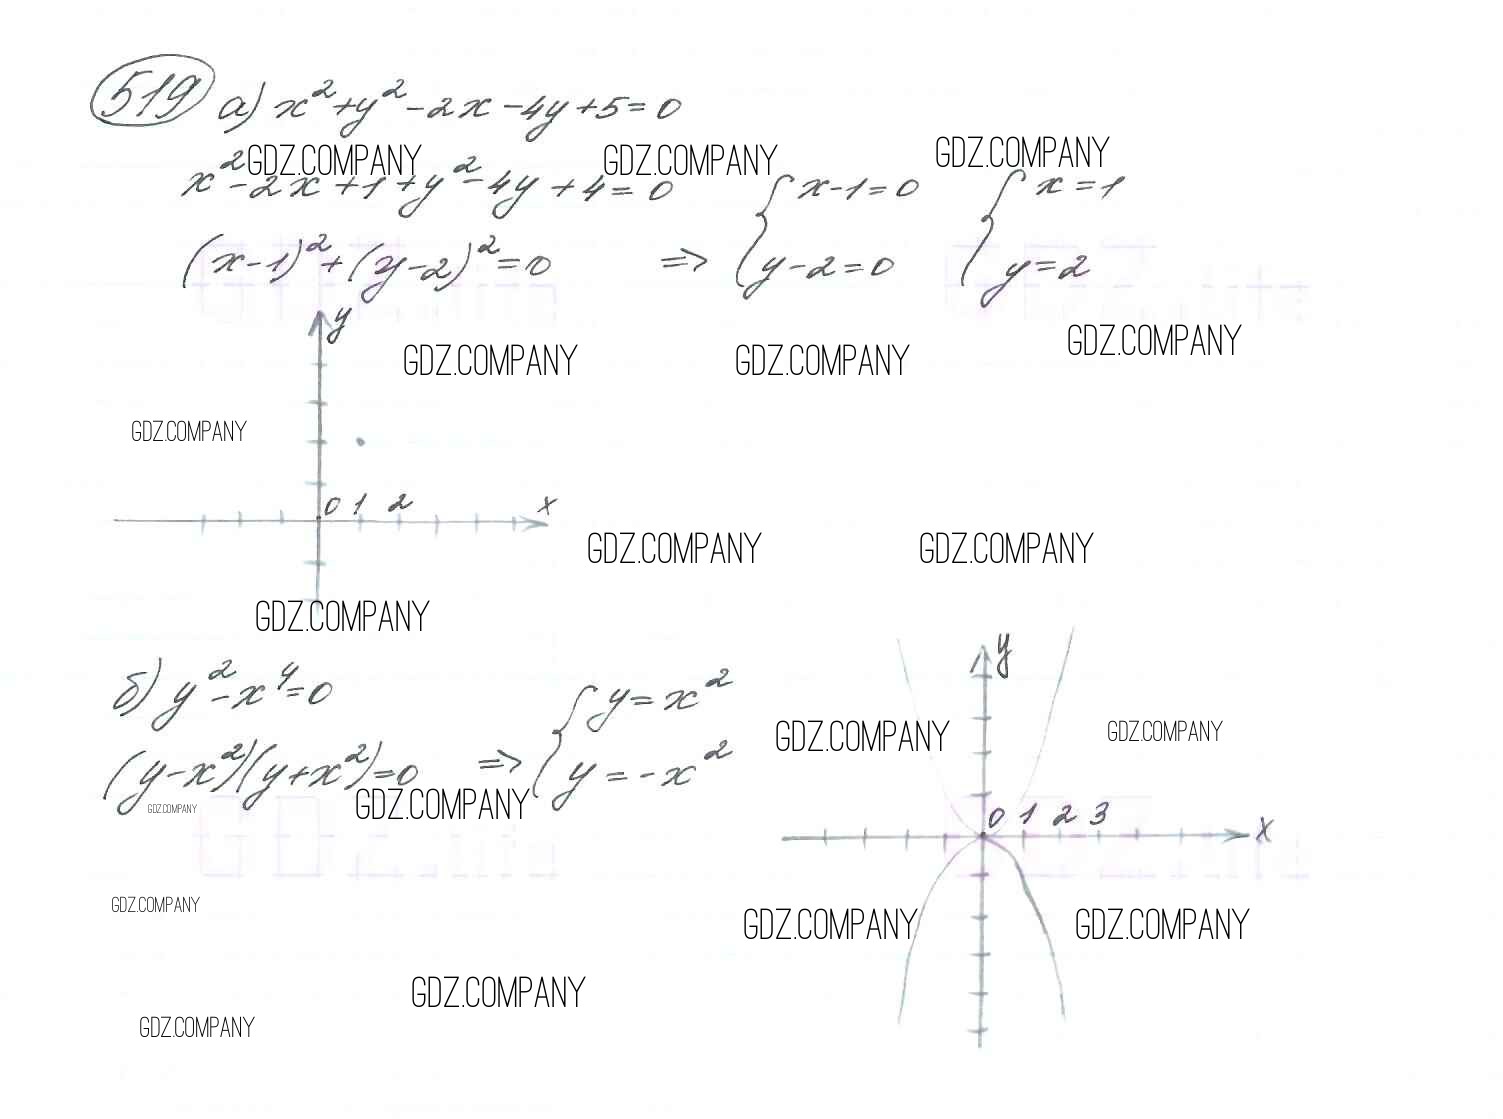 519 а) x² + y² - 2x - 4y + 5 = 0
GDZ.COMPANY GDZ.COMPANY GDZ.COMPANY
x² - 2x + 1 + y² - 4y + 4 = 0 { x - 1 = 0 { x = 1
(x - 1)² + (y - 2)² = 0 => y - 2 = 0 y = 2
y
GDZ.COMPANY GDZ.COMPANY GDZ.COMPANY
GDZ.COMPANY
0 1 2 x
GDZ.COMPANY GDZ.COMPANY
GDZ.COMPANY
y
б) y² - x⁴ = 0 { y = x²
GDZ.COMPANY GDZ.COMPANY
(y - x²)(y + x²) = 0 => y = -x²
GDZ.COMPANY GDZ.COMPANY
0 1 2 3 x
GDZ.COMPANY
GDZ.COMPANY GDZ.COMPANY
GDZ.COMPANY
GDZ.COMPANY